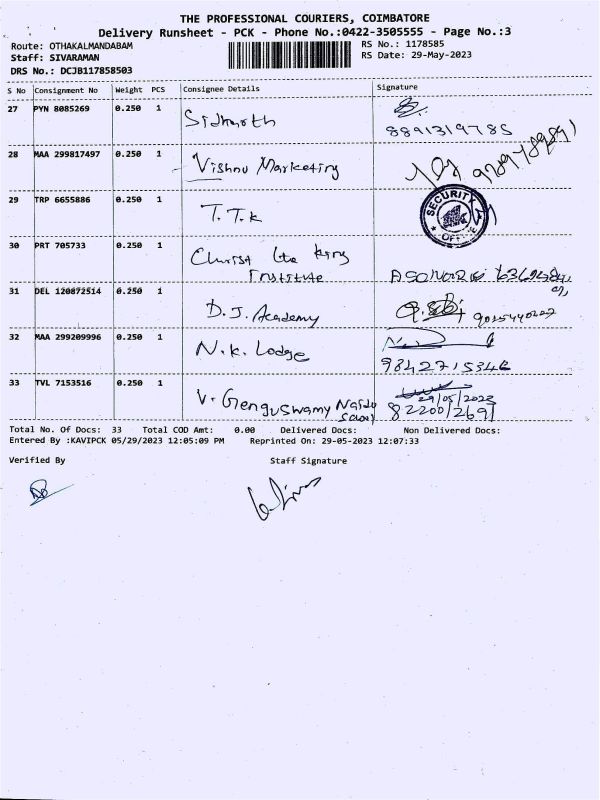 THE PROFESSIONAL COURIERS, COIMBATORE
Delivery Runsheet - PCK - Phone No.:0422-3505555 - Page No.:3
Route: OTHAKALMANDABAM RS No.: 1178585
Staff: SIVARAMAN RS Date: 29-May-2023
DRS No.: DCJB117858503
S No Consignment No Weight PCS Consignee Details Signature
27 PYN 8085269 0.250 1 Sidharth
8891319785
28 MAA 299817497 0.250 1 Vishnu Marketing
29 TRP 6655886 0.250 1 T.T.K
SECURITY OFFICE
30 PRT 705733 0.250 1 Christ the king
Institute
31 DEL 120872514 0.250 1 D.J. Academy
32 MAA 299209996 0.250 1 N.K. Lodge
33 TVL 7153516 0.250 1 V. Genguswamy Naidu
29/05/2023
Total No. Of Docs: 33 Total COD Amt: 0.00 Delivered Docs: Non Delivered Docs:
Entered By :KAVIPCK 05/29/2023 12:05:09 PM Reprinted On: 29-05-2023 12:07:33
Verified By Staff Signature